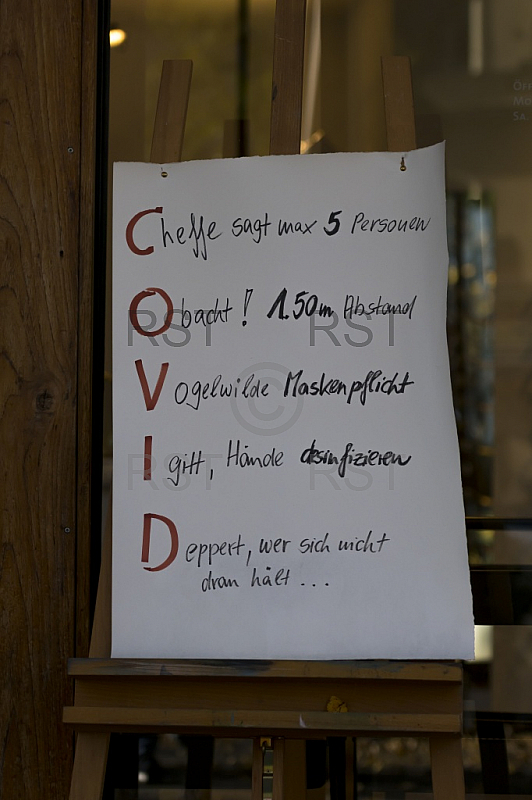 Öff
Mo
Sa.
Cheffe sagt max 5 Personen
Obacht! 1.50m Abstand
RST RST
Vogelwilde Maskenpflicht
©
Igitt, Hände desinfizieren
RST RST
Deppert, wer sich nicht
dran hält ...